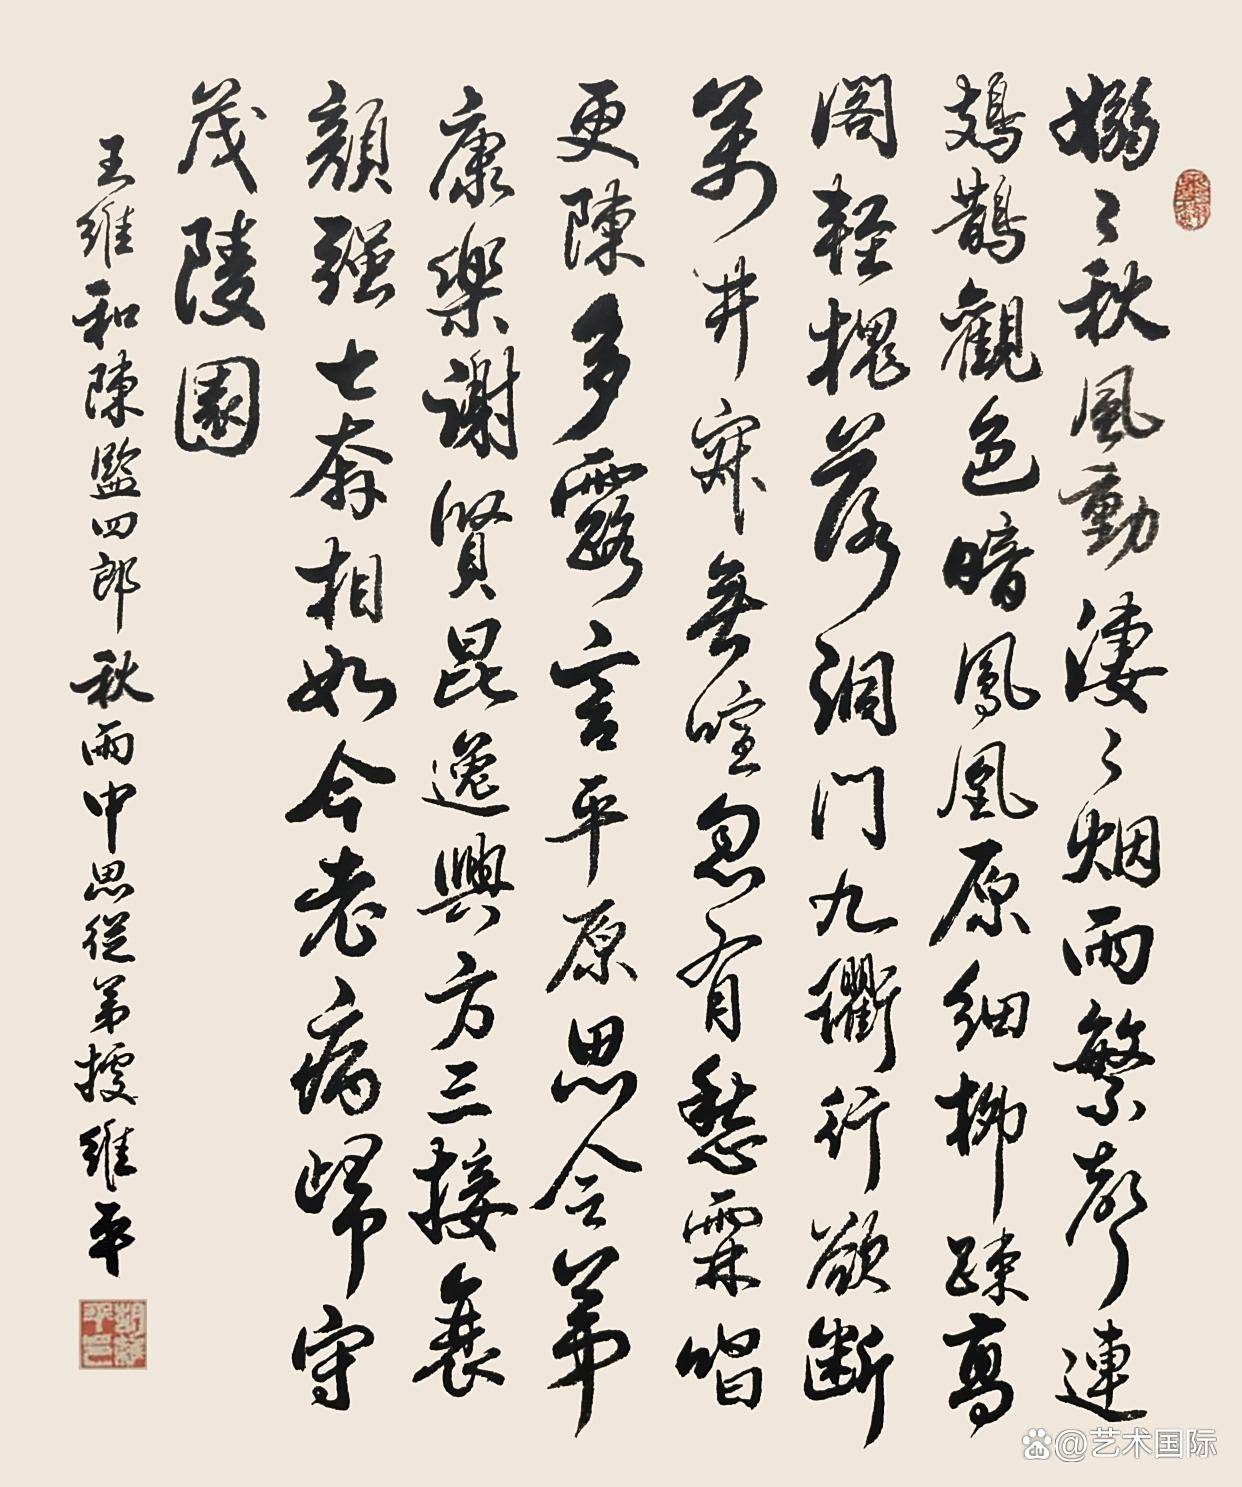 嫋〻秋風動淒〻烟雨繁聲連
鳷鵲觀色暗鳳凰原細柳疎高
閣輕槐落洞門九衢行欲斷
萬井寂無喧忽有愁霖唱
更陳多露言平原思令弟
康樂謝賢昆逸興方三接衰
顏强七奔相如今老病歸守
茂陵園
王維和陳監四郎秋雨中思從弟據維平
胡維平印
du @艺术国际